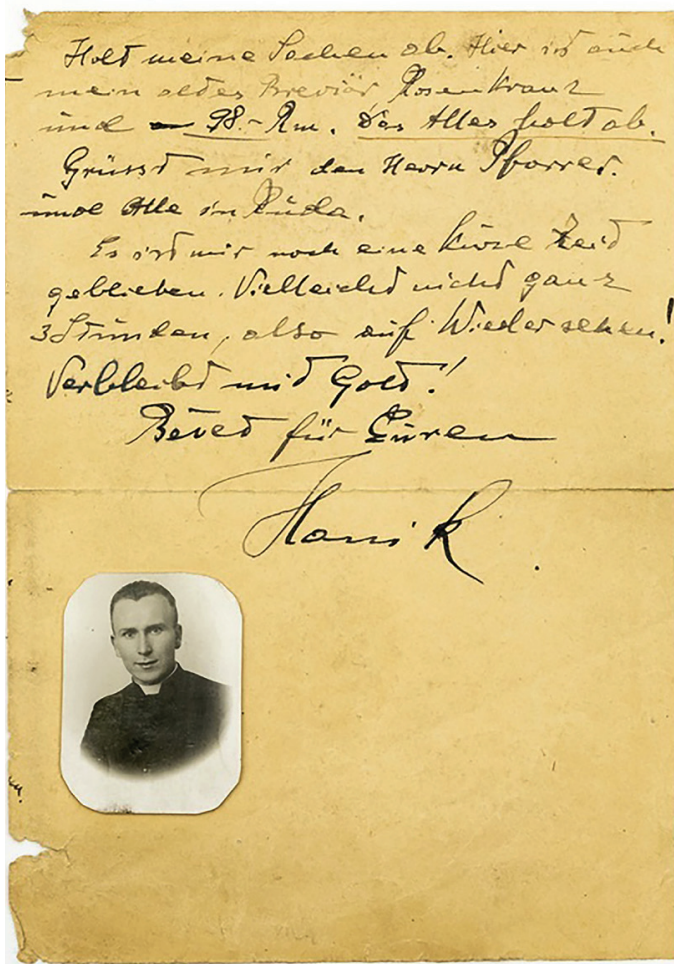 Holt meine Sachen ab. Hier ist auch
mein altes Brevier Rosenkranz
und 98.- Rm. Das Alles holt ab.
Grüsst mir den Herrn Pfarrer.
und Alle in Ruda.
Es ist mir noch eine kurze Zeit
geblieben. Vielleicht nicht ganz
3 Stunden, also auf Wiedersehen!
Verbleibt mit Gott!
Betet für Euren
Hanik.